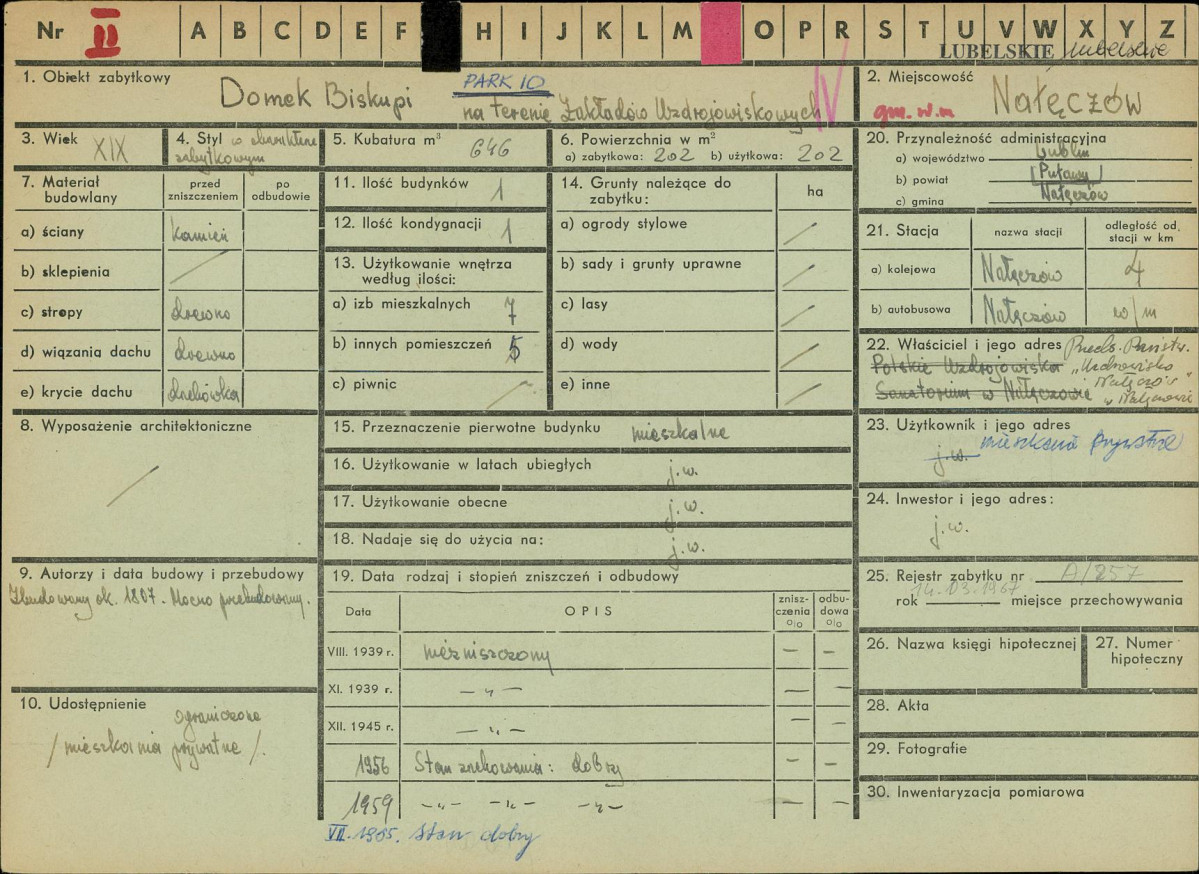 Nr II A B C D E F H I J K L M O P R S T U V W X Y Z
LUBELSKIE lubelskie
1. Obiekt zabytkowy
Domek Biskupi
PARK 10
na terenie Zakładów Uzdrojowiskowych
IV
2. Miejscowość
gm. w.m
Nałęczów
3. Wiek
XIX
4. Styl w charakterze
zabytkowym
5. Kubatura m³
646
6. Powierzchnia w m²
a) zabytkowa: 202 b) użytkowa: 202
20. Przynależność administracyjna
a) województwo Lublin
b) powiat Puławy
c) gmina Nałęczów
7. Materiał budowlany
przed zniszczeniem
po odbudowie
a) ściany kamień
b) sklepienia /
c) stropy drewno
d) wiązania dachu drewno
e) krycie dachu dachówka
11. Ilość budynków 1
12. Ilość kondygnacji 1
13. Użytkowanie wnętrza
według ilości:
a) izb mieszkalnych 7
b) innych pomieszczeń 5
c) piwnic /
14. Grunty należące do
zabytku:
ha
a) ogrody stylowe /
b) sady i grunty uprawne /
c) lasy /
d) wody /
e) inne /
21. Stacja
nazwa stacji
odległość od.
stacji w km
a) kolejowa Nałęczów 4
b) autobusowa Nałęczów w/m
22. Właściciel i jego adres Przeds. Państw.
Polskie Uzdrojowiska „Uzdrowisko
Sanatorium w Nałęczowie Nałęczów"
w Nałęczowie
8. Wyposażenie architektoniczne
/
15. Przeznaczenie pierwotne budynku mieszkalne
16. Użytkowanie w latach ubiegłych j.w.
17. Użytkowanie obecne j.w.
18. Nadaje się do użycia na: j.w.
23. Użytkownik i jego adres
j.w. mieszkania prywatne
24. Inwestor i jego adres:
j.w.
9. Autorzy i data budowy i przebudowy
Zbudowany ok. 1807. Mocno przebudowany.
10. Udostępnienie
ograniczone
/mieszkania prywatne/.
19. Data rodzaj i stopień zniszczeń i odbudowy
Data
OPIS
znisz-
czenia
o/o
odbu-
dowa
o/o
VIII. 1939 r. niezniszczony — —
XI. 1939 r. — „ — — —
XII. 1945 r. — „ — — —
1956 Stan zachowania: dobry — —
1959 —„— —„— —„— — —
VII. 1985. Stan dobry
25. Rejestr zabytku nr A/257
14.03.1967
rok miejsce przechowywania
26. Nazwa księgi hipotecznej
27. Numer
hipoteczny
28. Akta
29. Fotografie
30. Inwentaryzacja pomiarowa